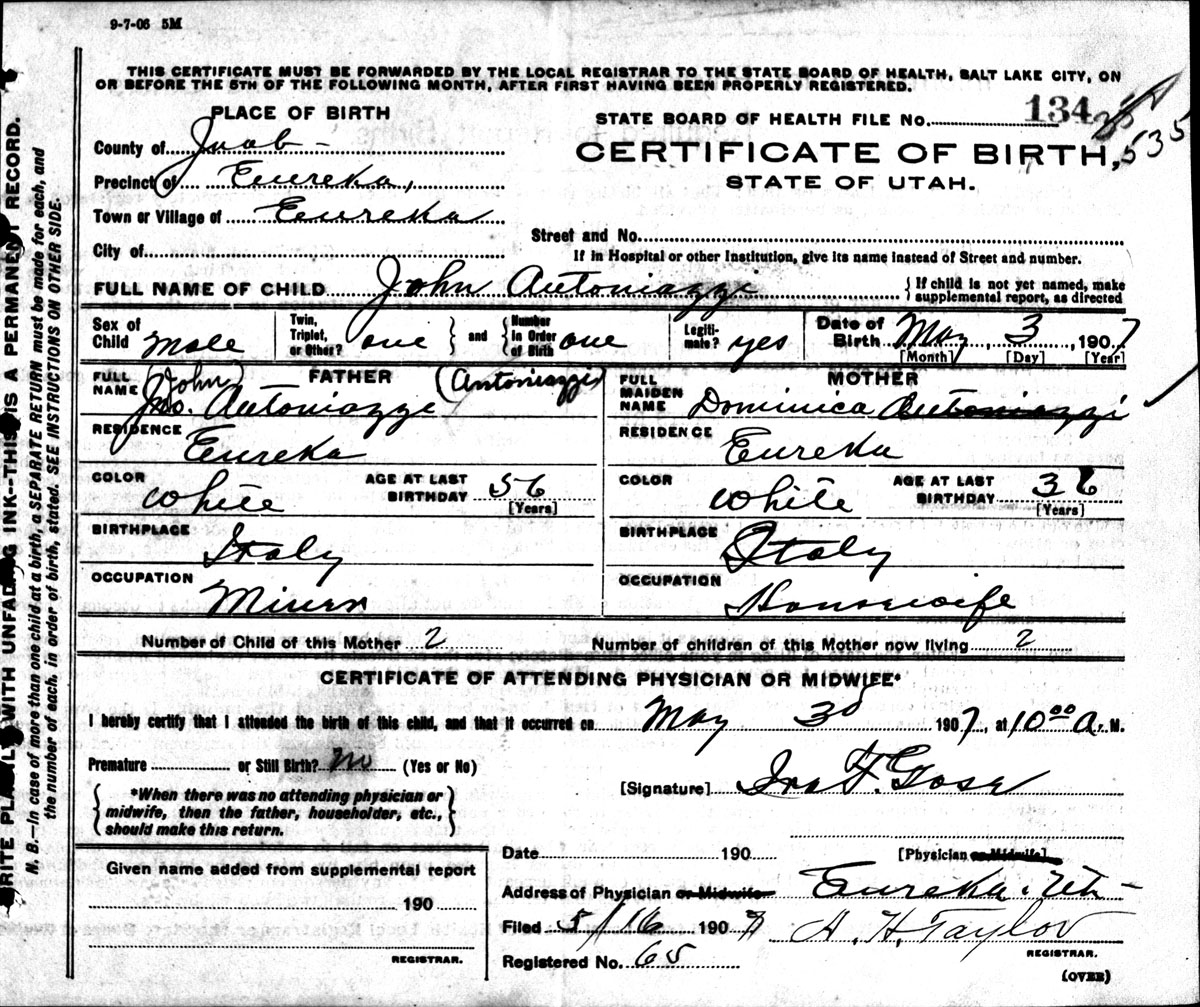 9-7-06 5M
THIS CERTIFICATE MUST BE FORWARDED BY THE LOCAL REGISTRAR TO THE STATE BOARD OF HEALTH, SALT LAKE CITY, ON
OR BEFORE THE 5TH OF THE FOLLOWING MONTH, AFTER FIRST HAVING BEEN PROPERLY REGISTERED.
PLACE OF BIRTH
STATE BOARD OF HEALTH FILE No. 134
535
County of Juab -
CERTIFICATE OF BIRTH,
Precinct of Eureka,
STATE OF UTAH.
Town or Village of Eureka
Street and No.
City of
If in Hospital or other Institution, give its name instead of Street and number.
FULL NAME OF CHILD John Antoniazzi { If child is not yet named, make supplemental report, as directed
Sex of Child Male Twin, Triplet, or Other? one } and { Number in Order of Birth one Legitimate? yes Date of Birth May 3, 1907
[Month] [Day] [Year]
FULL NAME FATHER (John) (Antoniazzi)
Jno. Antoniazzi
FULL MAIDEN NAME MOTHER
Dominica Antoniazzi
RESIDENCE Eureka
RESIDENCE Eureka
COLOR White AGE AT LAST BIRTHDAY 56 [Years]
COLOR White AGE AT LAST BIRTHDAY 36 [Years]
BIRTHPLACE Italy
BIRTHPLACE Italy
OCCUPATION Miner
OCCUPATION Housewife
Number of Child of this Mother 2 Number of children of this Mother now living 2
CERTIFICATE OF ATTENDING PHYSICIAN OR MIDWIFE*
I hereby certify that I attended the birth of this child, and that it occurred on May 3d 1907, at 10 00 A. M.
Premature or Still Birth? No (Yes or No)
[Signature] Ira F. Gose
{ *When there was no attending physician or
midwife, then the father, householder, etc.,
should make this return. }
Date 190 [Physician or Midwife]
Given name added from supplemental report
190
REGISTRAR.
Address of Physician or Midwife Eureka, Ut-
Filed 5/16 1907 H. H. Taylor
REGISTRAR.
Registered No. 65
(OVER)
WRITE PLAINLY WITH UNFADING INK--THIS IS A PERMANENT RECORD.
N. B.--In case of more than one child at a birth, a SEPARATE RETURN must be made for each, and
the number of each, in order of birth, stated. SEE INSTRUCTIONS ON OTHER SIDE.